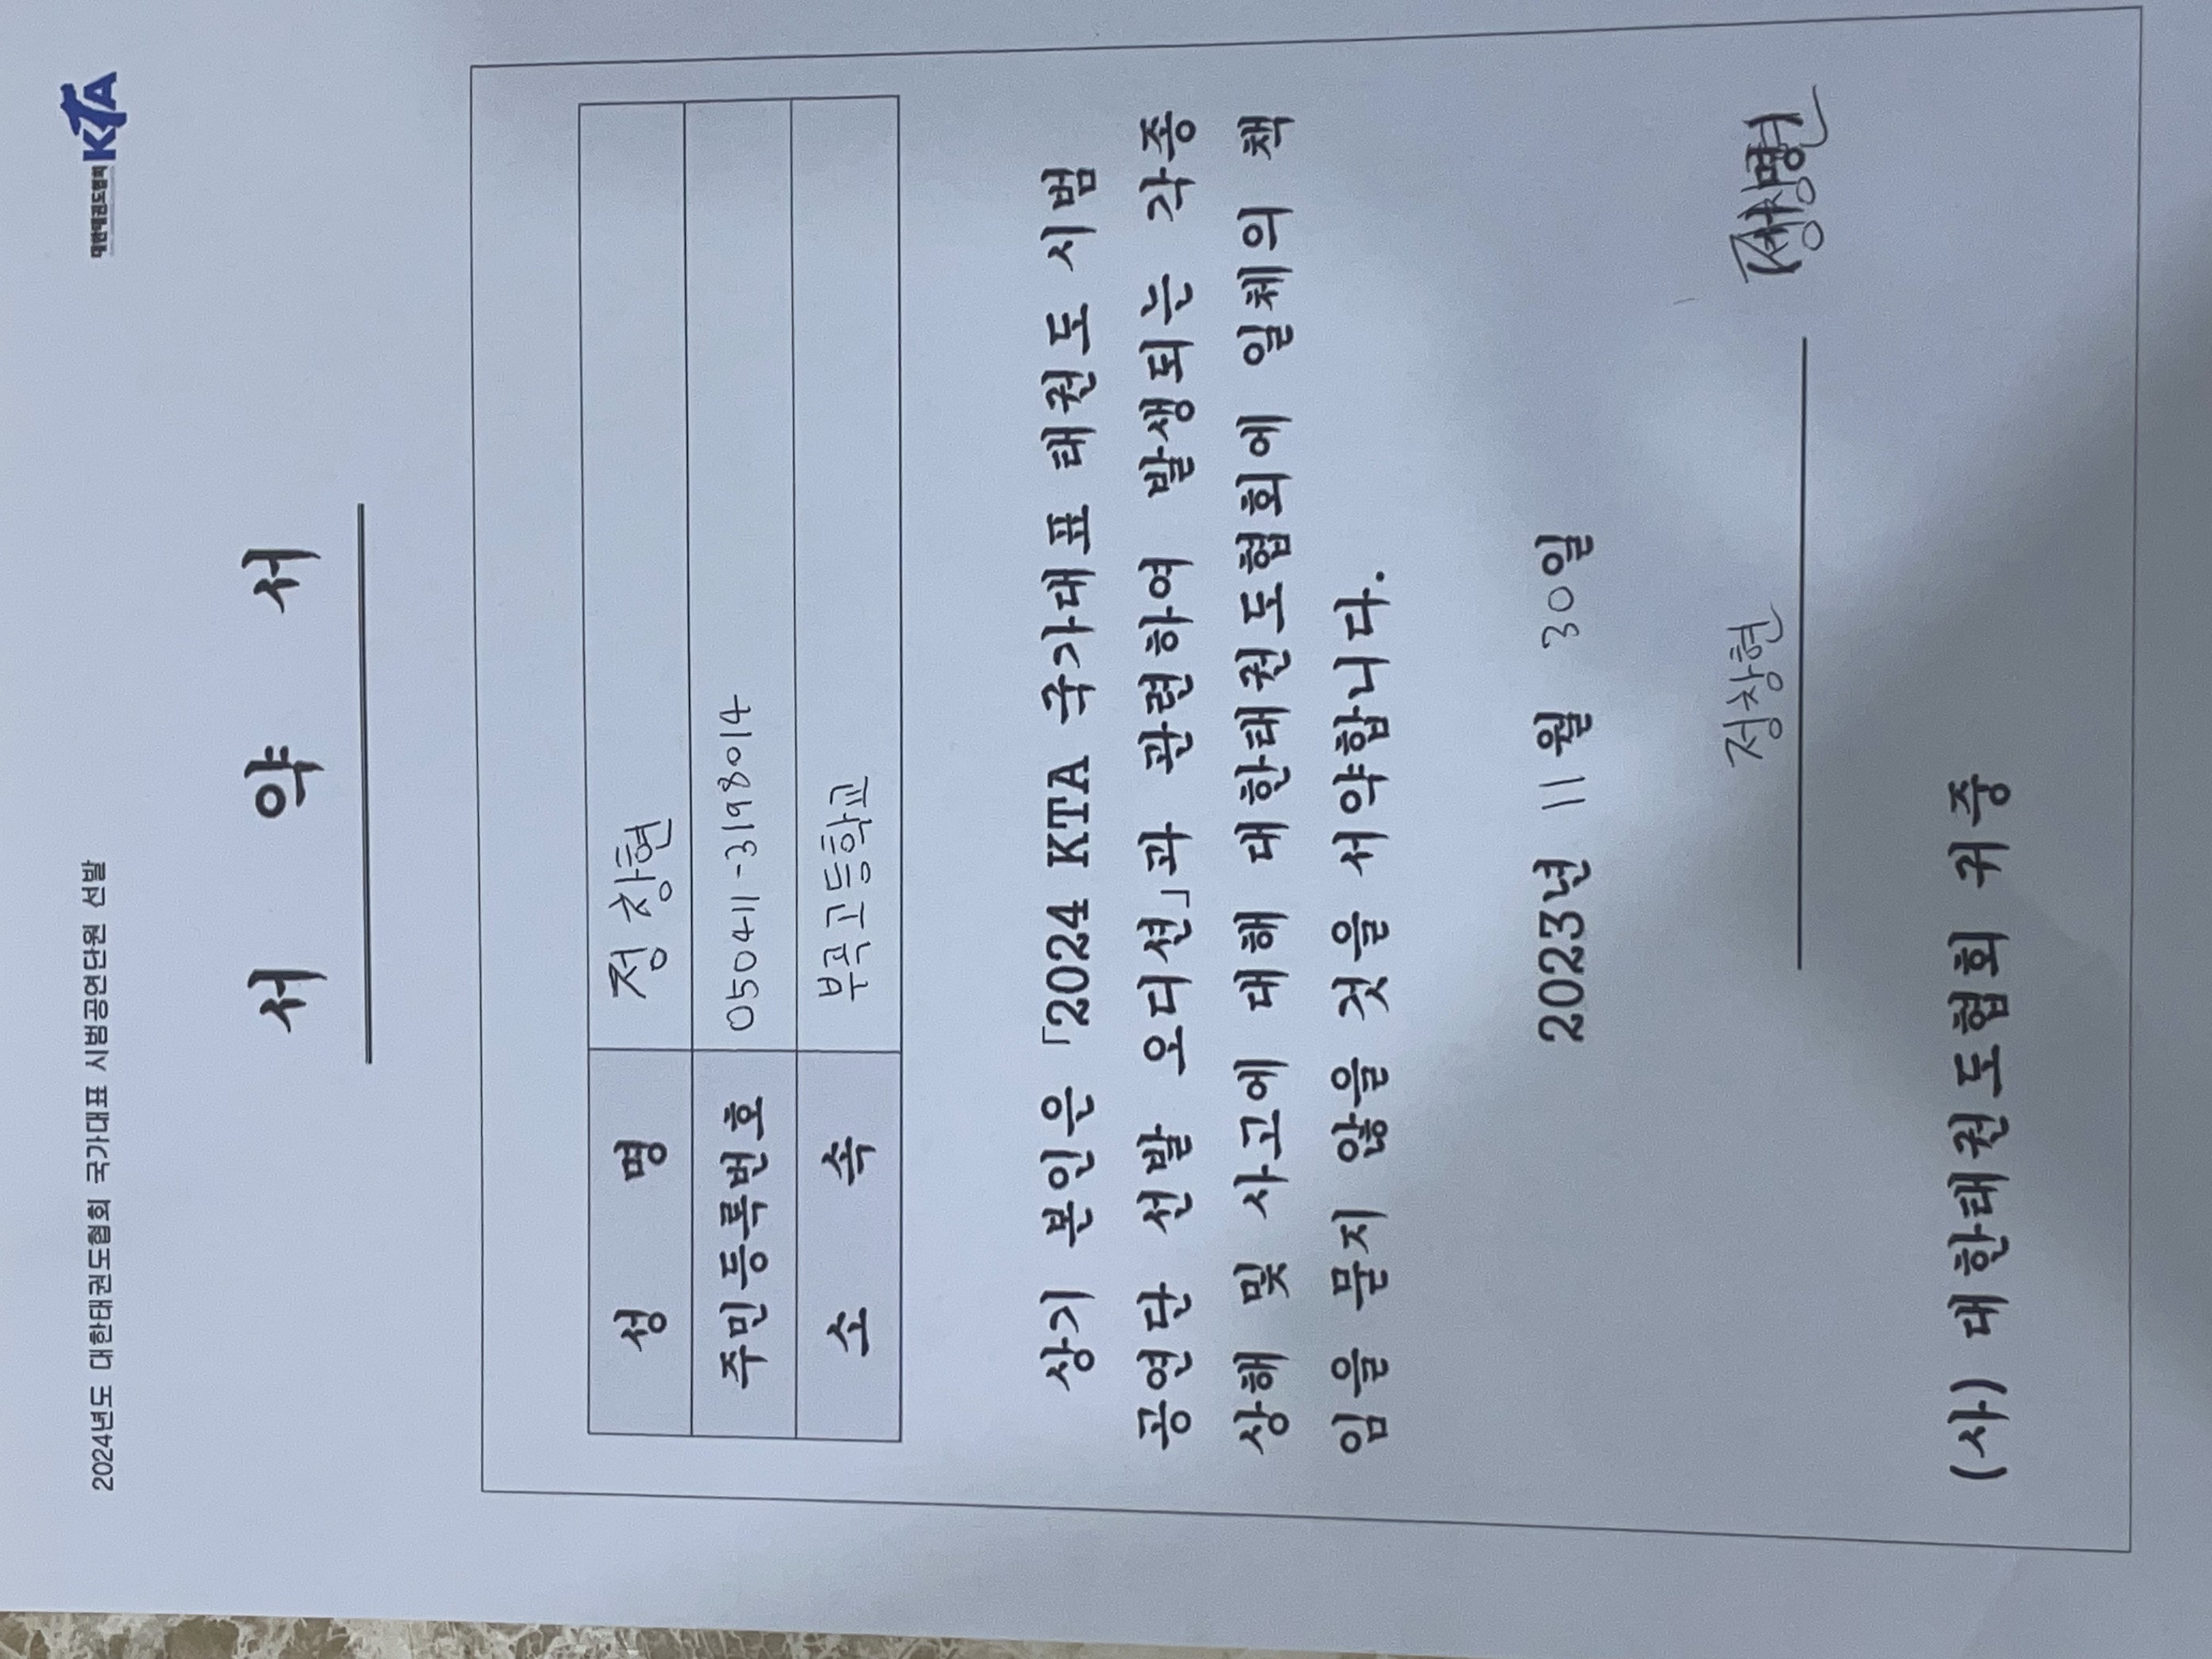 2024년도 대한태권도협회 국가대표 시범공연단원 선발
대한태권도협회 KTA
서 약 서
성 명 정창현
주민등록번호 050411-3198014
소 속 부곡고등학교
상기 본인은 「2024 KTA 국가대표 태권도 시범
공연단 선발 오디션」과 관련하여 발생되는 각종
상해 및 사고에 대해 대한태권도협회에 일체의 책
임을 묻지 않을 것을 서약합니다.
2023년 11월 30일
정창현 정창현
(사) 대한태권도협회 귀중